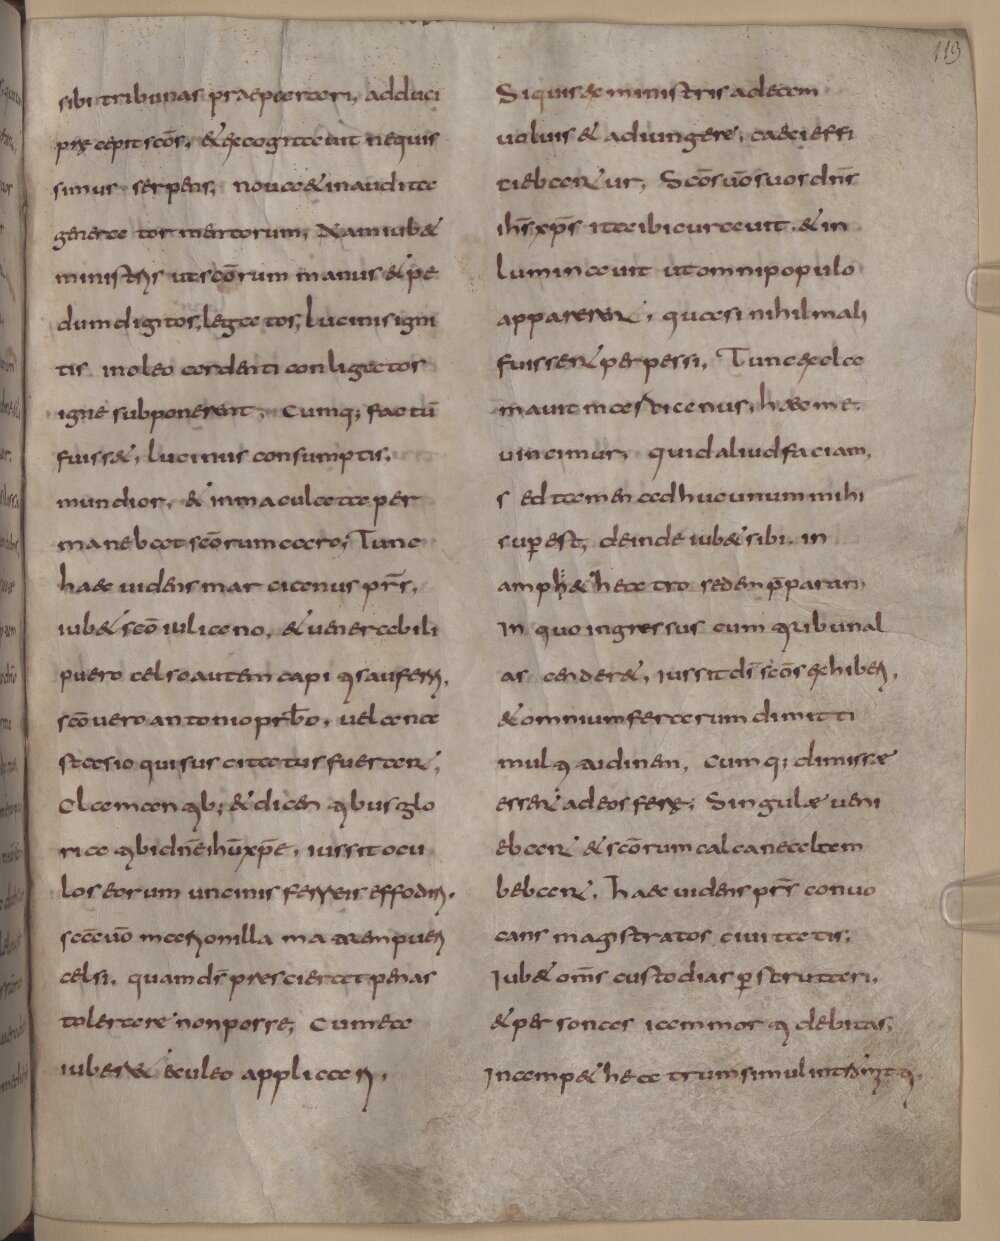 113
sibi tribunas praeparari, adduci
pręcepit scōs, & excogitauit nequis
simus serpens, noua & inaudita
genera tormentorum, Nam iub&
ministris ut scōrum manus & pe
dum digitos, legatos, lucinis igni
tis in oleo ardenti conligatos
igne subponerent, Cumq; factū
fuiss&, lucinis consumptis,
mundior, & inmaculata per
manebat scōrum caro, Tunc
haec uidens marcianus prs̄,
iub& scō iuliano, & uenerabili
puero celso autem capitis auferri,
scō uero antonio prbo, uel ana
stasio qui suscitatus fuerat,
Clamantib; & dicentibus glo
ria tibi dnē ihū xpē, iussit ocu
los eorum uncinis ferreis effodiri,
scā uō marionilla matrem pueri
celsi, quam ds̄ presciebat penas
tolerare non posse, Cum ea
iuber& eculeo applicari,
Siquis ex ministris adeam
uoluiss& adiungere, caeci effi
tiebantur, Scōs uō suos dn̄s
ihs̄ xps̄ ita ibi curauit, & in
luminauit ut omni populo
apparerent, quasi nihil mali
fuissent perpessi, Tunc excla
mauit marcianus, haec me
uincimur, quid aliud faciam,
sed tamen adhuc unum mihi
superest, deinde iub& sibi in
amphheatro sedem p̄parari,
In quo ingressus cum tribunal
ascender&, iussit ds̄ scōs exhiberi,
& omnium ferarum dimitti
multitudinem, Cumq; dimissae
essent ad eos ferę, Singulae ueni
ebant & scōrum calcanea lam
bebant, haec uidens prs̄ conuo
cans magistratos ciuitatis,
Iub& om̄s custodias perscrutari,
& personas iam morti debitas,
In ampheheatrum simul intromitti,